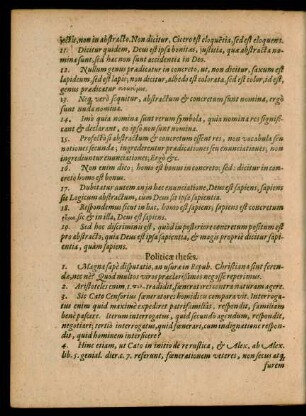 jectis, non in abstracto. Non dicitur, Cicero est eloquētia, sed est eloquens.
11. Dicitur quidem, Deus est ipsa bonitas, justitia, qua abstracta nomina
sunt, sed hac non sunt accidentia in Deo.
12. Nullum genus pradicatur in concreto, ut, non dicitur, saxum est
lapideum, sed est lapis; non dicitur, albedo est colorata, sed est color, id est,
genus pradicatur
13. Neq, verò sequitur, abstractum & concretum sunt nomina, ergò
sunt unda nomina.
14. Imò quia nomina sunt rerum symbola, quia nomina res significant
& declarant, eo ipso non sunt nomina.
15. Profectò si abstractum & concretum essent res, non vocabula seu
notiones secunda, ingrederentur pradicationes seu enunciationes, non
ingrediuntur enunciationes, Ergò &c.
16. Non enim dico: homo est bonus in concreto, sed: dicitur in concreto
homo est bonus.
17. Dubitatur autem an ja hac enunciatione, Deus est sapiens, sapiens
sit Logicum abstractum, cùm Deus sit ipsa sapientia.
18. Respondemus sicut in hac, homo est sapiens, sapiens est concretum
sic & in illa, Deus est sapiens.
19. Sed hoc discriminis est, quòd in posteriore concretum positum est
pro abstracto, quia Deus est ipsa sapientia, & magis propriè dicitur sapientia,
quàm sapiens.
Politicæ theses.
1. Magna sapè disputatio, an usura in Repub. Christiana sint ferenda,
nec ne? Quod multos veros praclarissimos negasse reperimus.
2. Aristoteles enim tradidit, fœnerari contra naturam agere.
3. Sic Cato Censorius fœneratores homicidio comparavit. Interrogatus
enim quid maximè expediret patrifamiliâs, respondit, familiam
benè pascere. Iterum interrogatus, quid secundo agendum, respondit,
negotiari; tertiò interrogatus, quid fœnerari, cum indignatione respondit,
quid hominem interficere?
4. Hinc etiam, ut Cato in initio de re rustica, & Alex. ab Alex.
lib. 5. genial. dier. c. 7. referunt, fœnerationem vitares, non secus atq,
furem